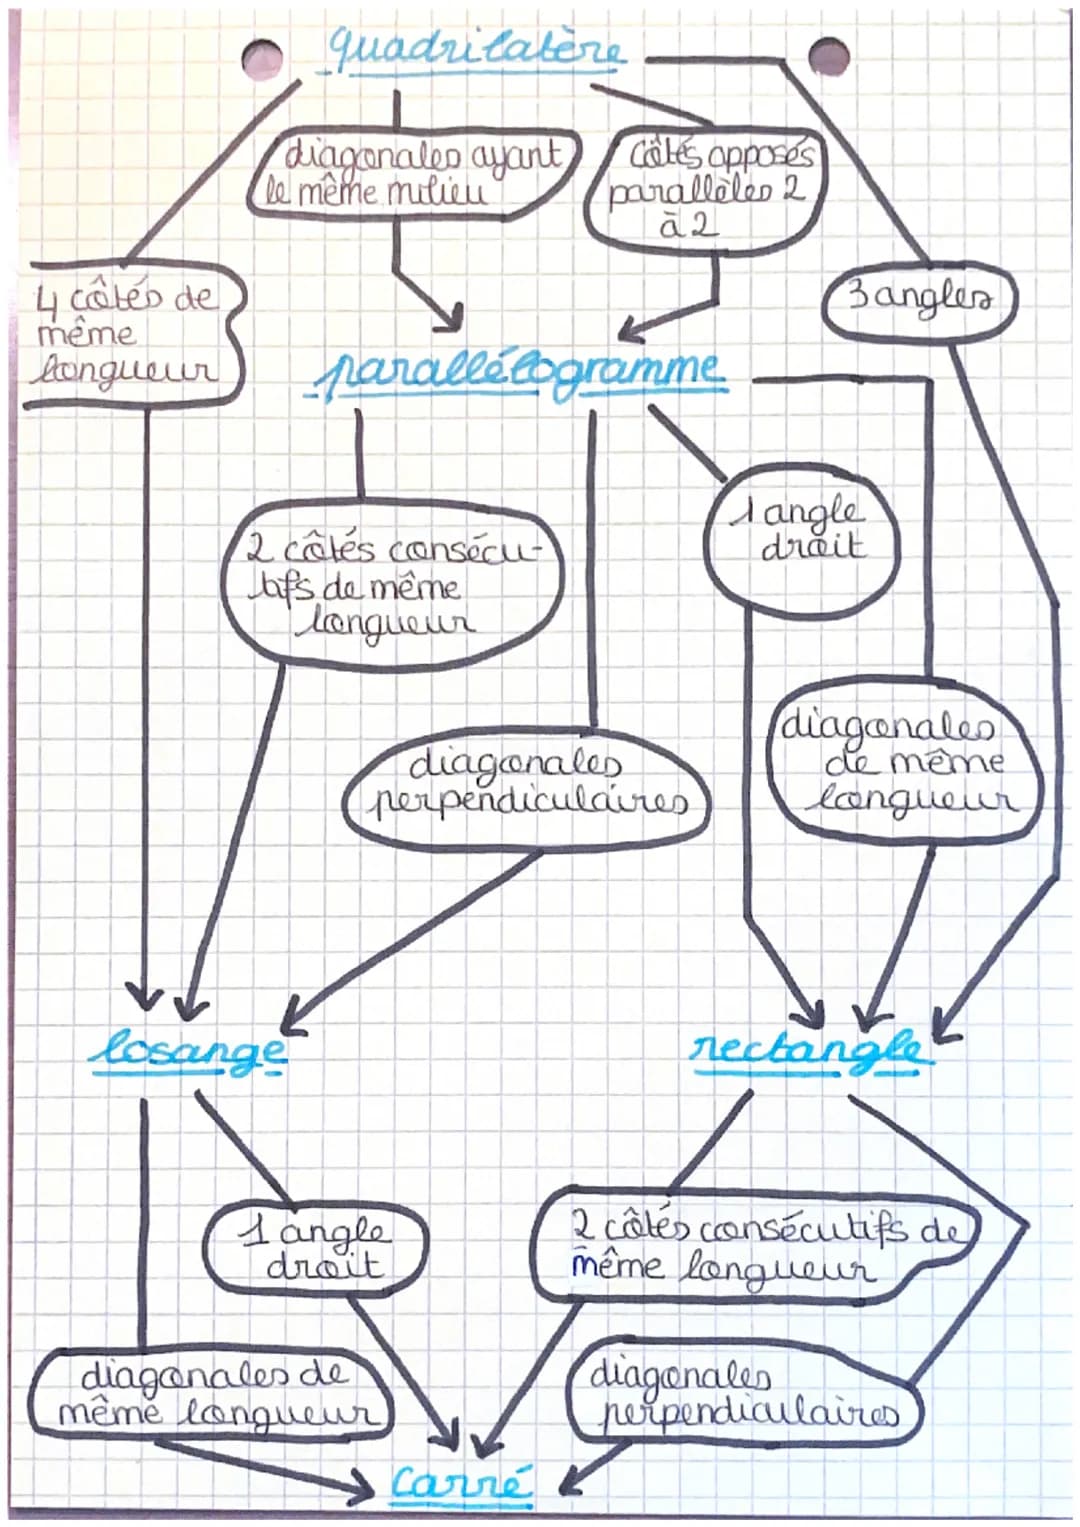 quadrilatère
diagonales ayant
le même milieu
Côtés opposés
parallèles 2
à 2
4 côtés de
même
longueur
3 angles
parallélogramme
1 angle
droit
2 côtés consécu-
tifs de même
longueur
diagonales
de même
longueur
diagonales
perpendiculaires
losange
rectangle
1 angle
droit
2 côtés consécutifs de
même longueur
diagonales de
même longueur
diagonales
perpendiculaires
Carré